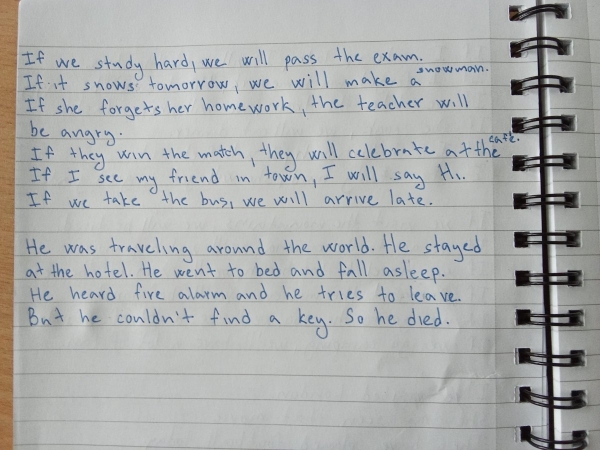 If we study hard, we will pass the exam.
If it snows tomorrow, we will make a snowman.
If she forgets her homework, the teacher will
be angry.
If they win the match, they will celebrate at the cafe.
If I see my friend in town, I will say Hi.
If we take the bus, we will arrive late.
He was traveling around the world. He stayed
at the hotel. He went to bed and fall asleep.
He heard fire alarm and he tries to leave.
But he couldn't find a key. So he died.